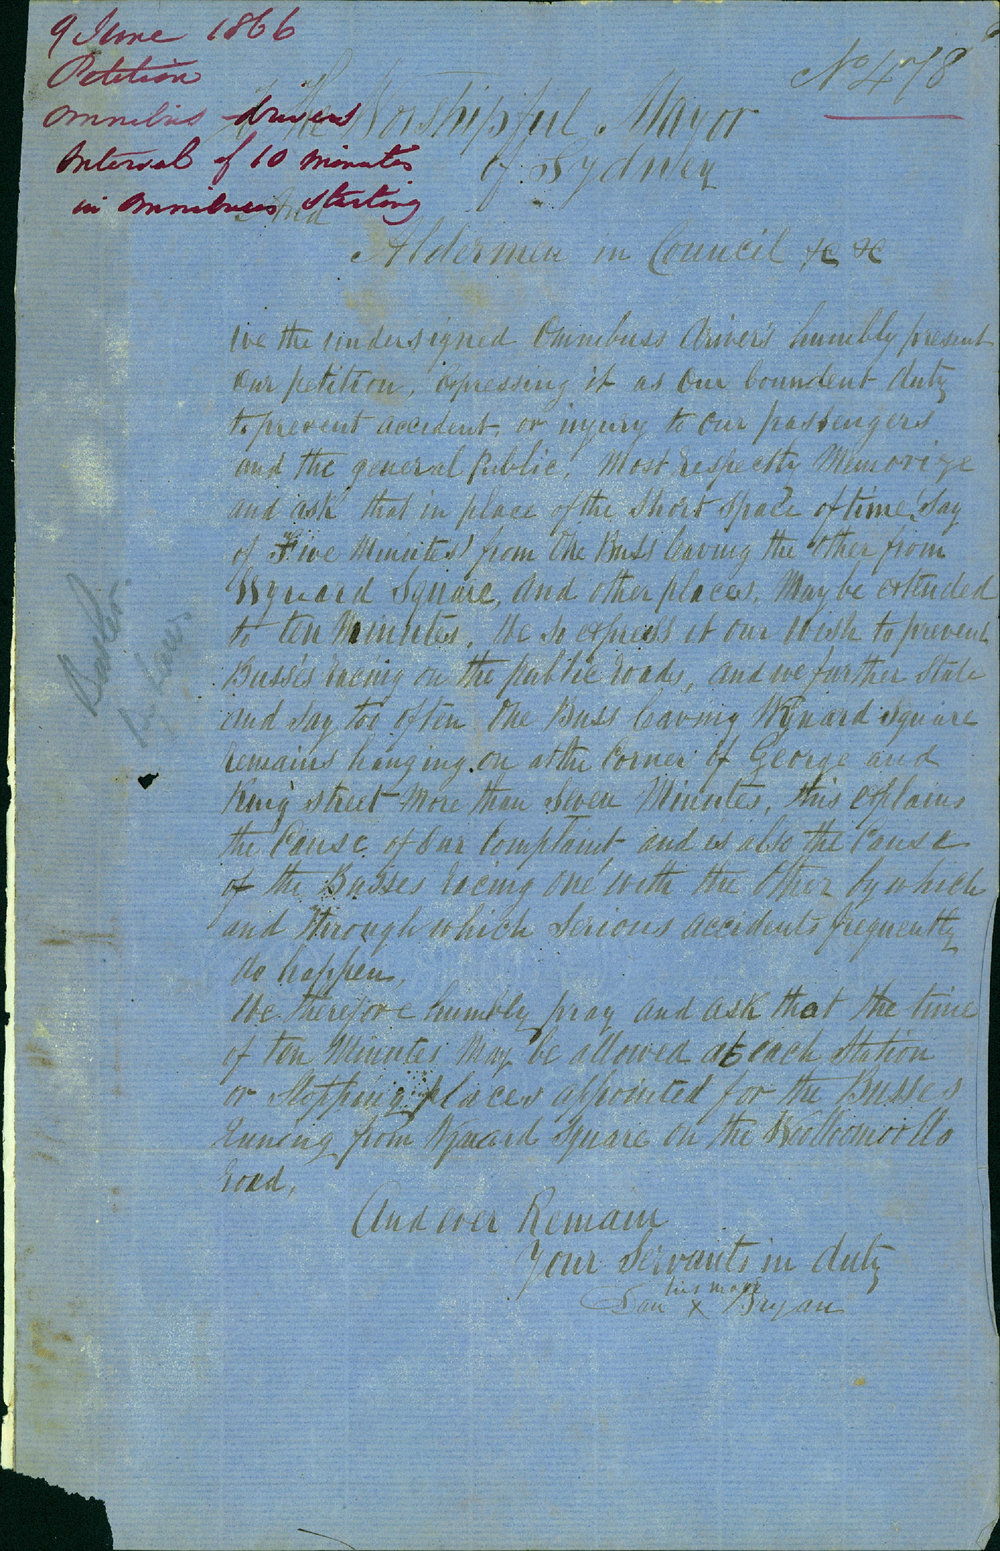 9 June 1866
Petition
Omnibus drivers
Interval of 10 minutes
in Omnibuses starting
No 478
The Worshipful Mayor
of Sydney
and
Aldermen in Council &c &c
We the undersigned Omnibuss Drivers humbly present
Our petition, Expressing it as Our boundent duty
to prevent accident, or injury to Our passengers
and the general Public, Most respectly Memorize
and ask that in place of the Short space of time, Say
of Five Minutes from One Buss leaving the other from
Wynard Square, and other places, May be extended
to ten Minutes, We so express it our Wish to prevent
Busses racing on the public roads, and we further State
and say too often One Buss leaving Wynard Square
remains hanging on at the Corner of George and
King street More than Seven Minutes, this explains
the Cause of Our Complaint and is also the Cause
of the Busses racing one with the Other by which
and through which Serious accidents frequently
do happen,
We therefore humbly pray and ask that the time
of ten Minutes May be allowed at each Station
or Stopping places appointed for the Busses
runing from Wynard Square on the Woolloomoollo
road,
And ever Remain
Your Servants in duty
his mark
x Bryan